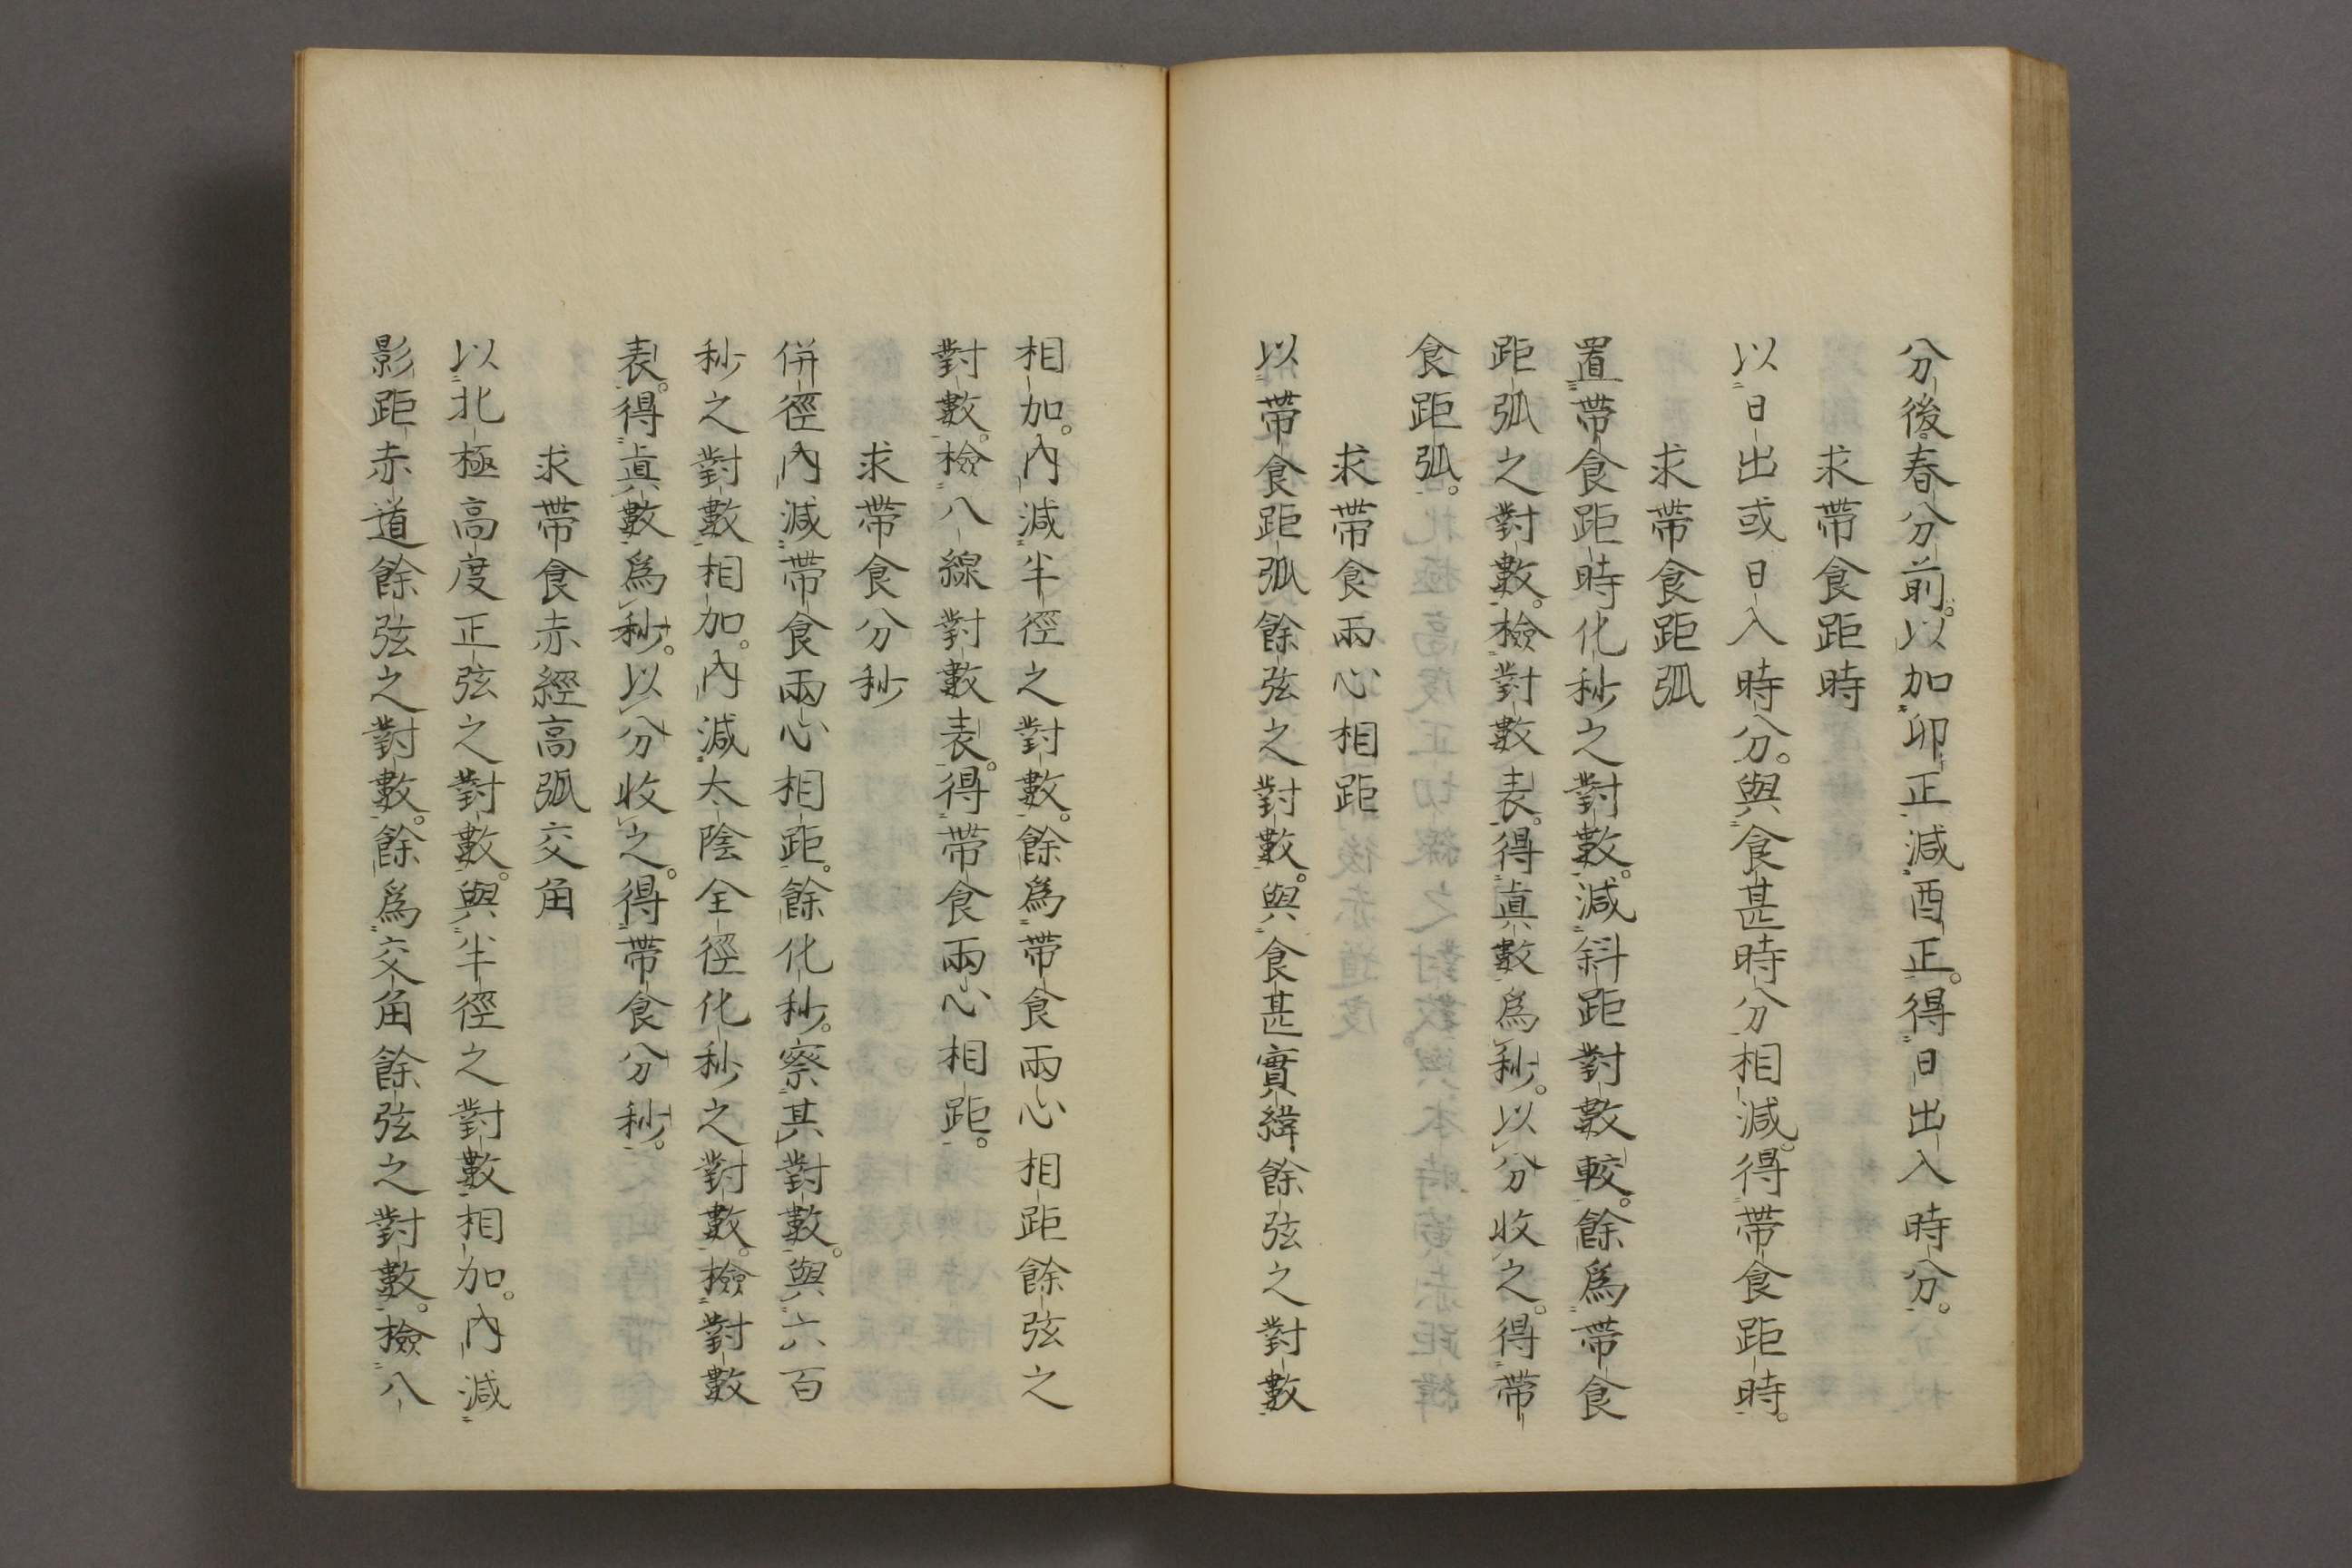 分後。春分前。以加卯正減酉正。得日出入時分。
求帶食距時
以日出或日入時分。與食甚時分相減。得帶食距時。
求帶食距弧
置帶食距時化秒之對數。減斜距對數較。餘爲帶食
距弧之對數。檢對數表。得眞數爲秒。以分收之。得帶
食距弧。
求帶食兩心相距
以帶食距弧餘弦之對數。與食甚實緯餘弦之對數
相加。內減半徑之對數。餘爲帶食兩心相距餘弦之
對數。檢八線對數表。得帶食兩心相距。
求帶食分秒
併徑內減帶食兩心相距。餘化秒。察其對數。與六百
秒之對數相加。內減太陰全徑化秒之對數。檢對數
表。得眞數爲秒。以分收之。得帶食分秒。
求帶食赤經高弧交角
以北極高度正弦之對數。與半徑之對數相加。內減
影距赤道餘弦之對數。餘爲交角餘弦之對數。檢八